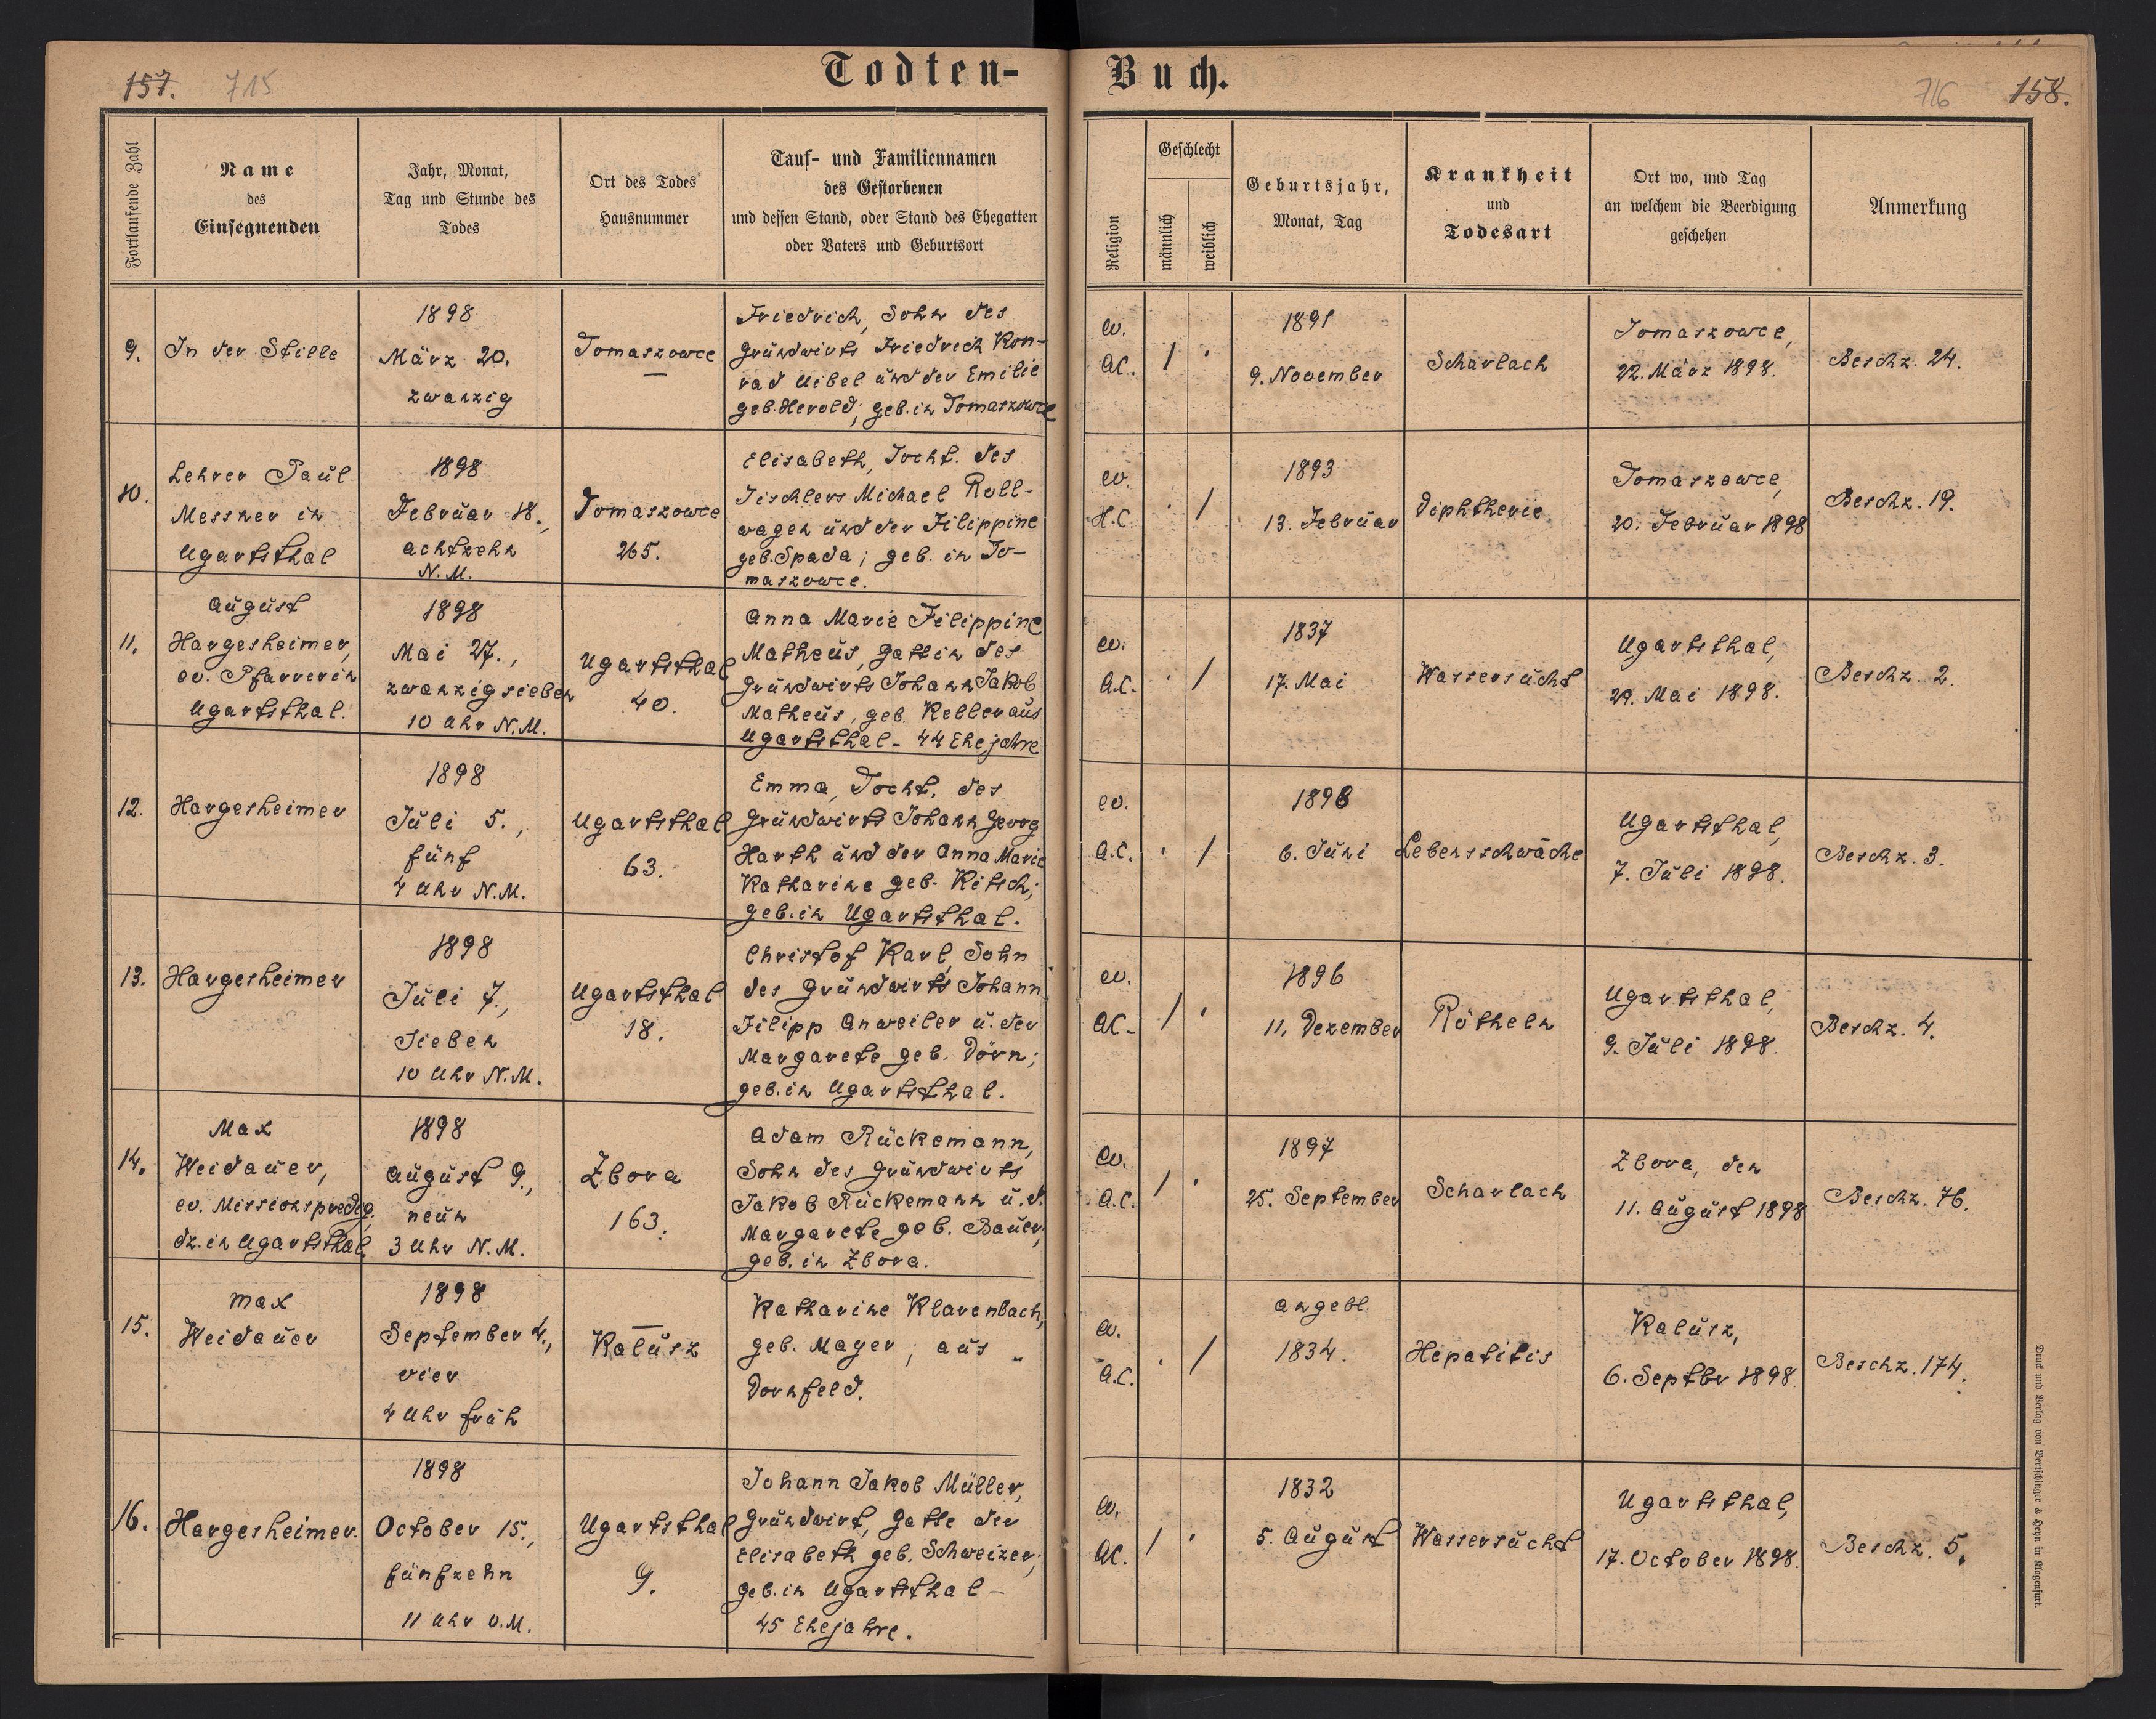 157. 715
Todten-
Buch.
716 158.
Fortlaufende Zahl
Name
des
Einsegnenden
Jahr, Monat,
Tag und Stunde des
Todes
Ort des Todes
Hausnummer
Tauf- und Familiennamen
des Gestorbenen
und dessen Stand, oder Stand des Ehegatten
oder Vaters und Geburtsort
Religion
Geschlecht
männlich
weiblich
Geburtsjahr,
Monat, Tag
Krankheit
und
Todesart
Ort wo, und Tag
an welchem die Beerdigung
geschehen
Anmerkung
9.
In der Stille
1898
März 20.
zwanzig
Tomaszowce
—
Friedrich, Sohn des
Grundwirts Friedrich Kon-
rad Uibel und der Emilie
geb. Herold; geb. in Tomaszowce
ev.
AC.
/ .
1891
9. November
Scharlach
Tomaszowce,
22. März 1898.
Beschz. 24.
10.
Lehrer Paul
Messner in
Ugartsthal
1898
Februar 18.,
achtzehn
N.M.
Tomaszowce
265.
Elisabeth, Tocht. des
Tischlers Michael Roll-
wagen und der Filippine
geb. Spada; geb. in To-
maszowce.
ev.
H.C.
. /
1893
13. Februar
Diphtherie
Tomaszowce,
20. Februar 1898
Beschz. 19.
11.
August
Hargesheimer,
ev. Pfarrer in
Ugartsthal.
1898
Mai 27.,
zwanzigsieben
10 Uhr N.M.
Ugartsthal
40.
Anna Marie Filippine
Matheus, Gattin des
Grundwirts Johann Jakob
Matheus, geb. Keller aus
Ugartsthal - 44 Ehejahre
ev.
A.C.
. /
1837
17. Mai
Wassersucht
Ugartsthal,
29. Mai 1898.
Beschz. 2.
12.
Hargesheimer
1898
Juli 5.,
fünf
4 Uhr N.M.
Ugartsthal
63.
Emma, Tocht. des
Grundwirts Johann Georg
Harth und der Anna Marie
Katharine geb. Kitsch;
geb. in Ugartsthal.
ev.
A.C.
. /
1898
6. Juni
Lebensschwäche
Ugartsthal,
7. Juli 1898.
Beschz. 3.
13.
Hargesheimer
1898
Juli 7.,
sieben
10 Uhr N.M.
Ugartsthal
18.
Christof Karl, Sohn
des Grundwirts Johann
Filipp Anweiler u. der
Margarete geb. Dörn;
geb. in Ugartsthal.
ev.
AC.
/ .
1896
11. Dezember
Rötheln
Ugartsthal,
9. Juli 1898.
Beschz. 4.
14.
Max
Weidauer,
ev. Missionspredig.
dz. in Ugartsthal.
1898
August 9.,
neun
3 Uhr N.M.
Zbora
163.
Adam Rückemann,
Sohn des Grundwirts
Jakob Rückemann u. d.
Margarete geb. Bauer;
geb. in Zbora.
ev.
A.C.
/ .
1897
25. September
Scharlach
Zbora, den
11. August 1898
Beschz. 76.
15.
Max
Weidauer
1898
September 4.,
vier
4 Uhr früh
—
Kalusz
Katharine Klarenbach,
geb. Mayer; aus
Dornfeld.
ev.
A.C.
. /
angebl.
1834.
Hepatitis
Kalusz,
6. Septbr 1898.
Beschz. 174.
16.
Hargesheimer.
1898
October 15.,
fünfzehn
11 Uhr V.M.
Ugartsthal
9.
Johann Jakob Müller,
Grundwirt, Gatte der
Elisabeth geb. Schweizer;
geb. in Ugartsthal -
45 Ehejahre.
ev.
AC.
/ .
1832
5. August
Wassersucht
Ugartsthal,
17. October 1898.
Beschz. 5.
Druck und Verlag von Bertschinger & Heyn in Klagenfurt.